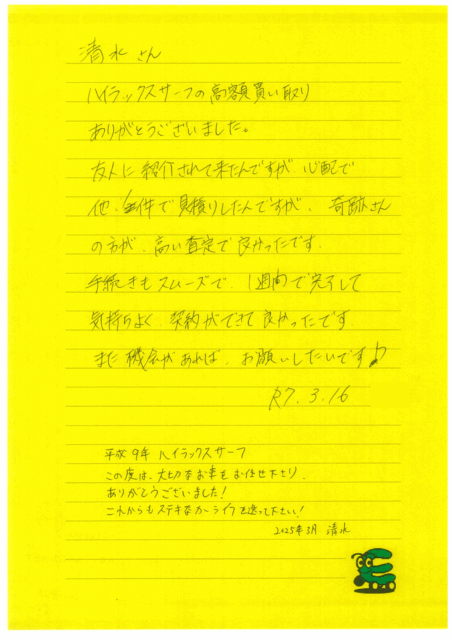 清水さん
ハイラックスサーフの高額買い取り
ありがとうございました。
友人に紹介されて来たんですが 心配で
他、件で見積りしたんですが、奇跡さん
の方が、高い査定で良かったです。
手続きもスムーズで、1週間で完了して
気持ちよく、契約ができて良かったです
また機会があれば、お願いしたいです♪
R7.3.16
平成9年 ハイラックスサーフ
この度は、大切なお車をお任せ下さり、
ありがとうございました!
これからもステキなカーライフを送って下さい!
2025年3月 清水